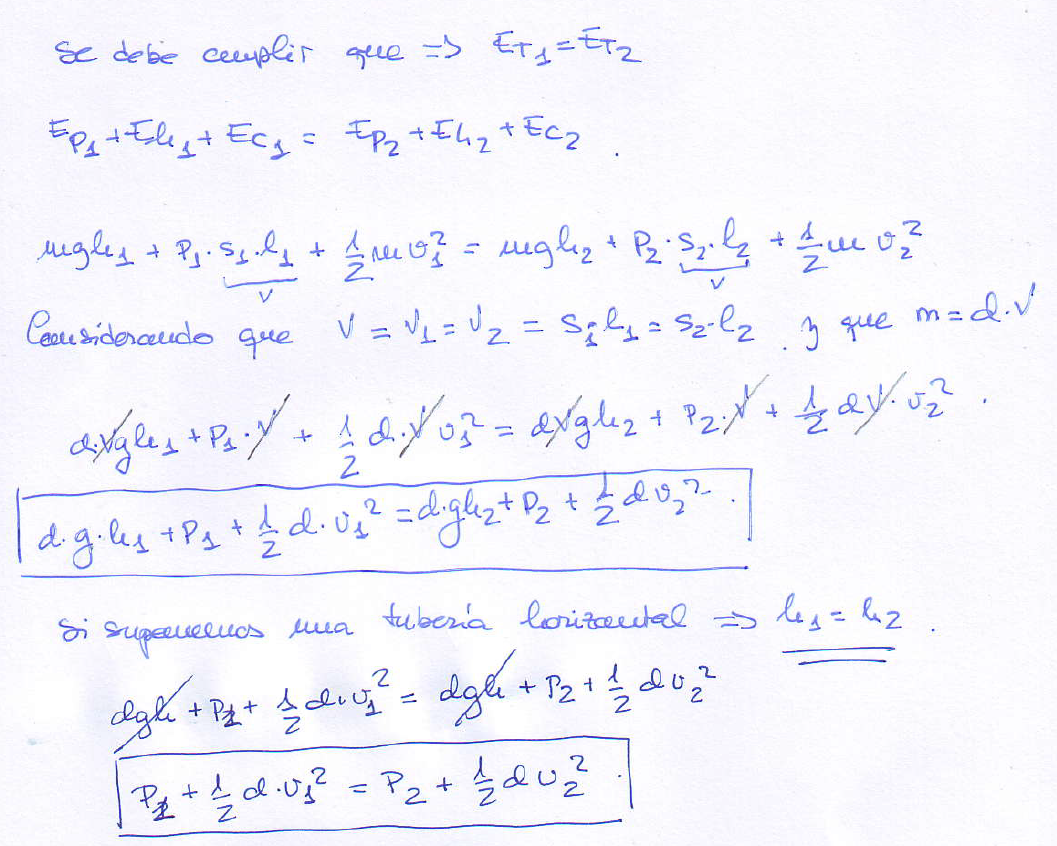 Se debe cumplir que => ET1 = ET2
Ep1 + Eh1 + Ec1 = Ep2 + Eh2 + Ec2 .
mgh1 + P1 · s1 · l1 + 1/2 m v1² = mgh2 + P2 · s2 · l2 + 1/2 m v2²
V V
Considerando que V = V1 = V2 = S1 · l1 = S2 · l2 y que m = d · V
d·Vgh1 + P1 · V + 1/2 d · V v1² = dVgh2 + P2 · V + 1/2 dV · v2² .
d · g · h1 + P1 + 1/2 d · v1² = d · gh2 + P2 + 1/2 d v2² .
Si suponemos una tubería horizontal => h1 = h2 .
dgh + P1 + 1/2 d · v1² = dgh + P2 + 1/2 d v2²
P1 + 1/2 d · v1² = P2 + 1/2 d v2² .